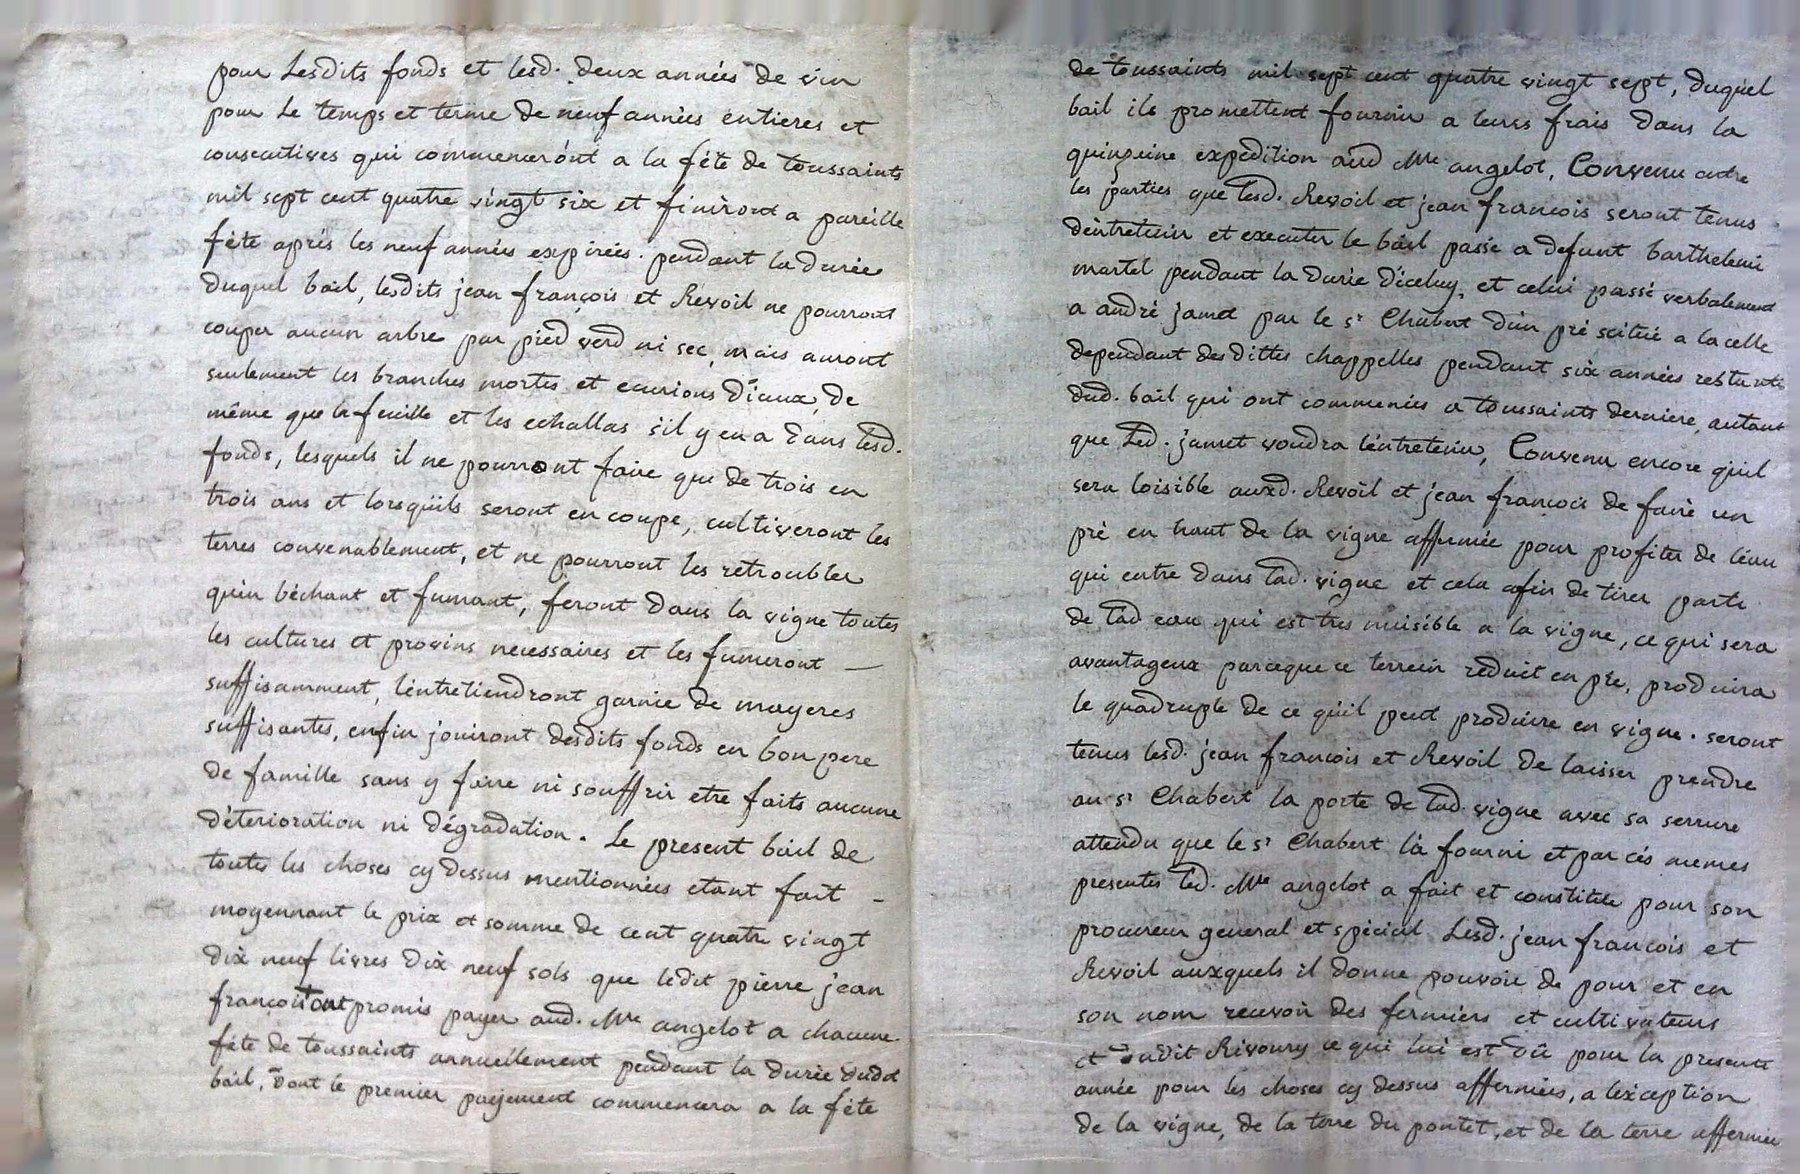 pour Lesdits fonds et lesd. deux années de vin
pour Le temps et terme de neuf années entieres et
consecutives qui commenceront a la féte de toussaints
mil sept cent quatre vingt six et finiront a pareille
féte aprés les neuf années expirées. pendant la durée
duquel bail, lesdits jean françois et Revoil ne pourront
couper aucun arbre par pied verd ni sec, mais auront
seulement les branches mortes et de
même que la feuille et les echallas s'il y en a dans lesd.
fonds, lesquels il ne pourront faire que de trois en
trois ans et lorsqu'ils seront en coupe, cultiveront les
terres convenablement, et ne pourront les retroubler
qu'en béchant et fumant, feront dans la vigne toutes
les cultures et provins necessaires et les fumeront —
suffisamment, l'entretiendront garnie de mayeres
suffisantes, enfin jouiront desdits fonds en bon pere
de famille sans y faire ni souffrir etre faits aucune
déterioration ni dégradation. Le present bail de
toutes les choses cy dessus mentionnées etant fait –
moyennant le prix et somme de cent quatre vingt
dix neuf livres dix neuf sols que ledit pierre jean
françois ont promis payer aud. Mre angelot a chacune
féte de toussaints annuellement pendant la durée dudit
bail, dont le premier payement commencera a la féte
de toussaints mil sept cent quatre vingt sept, duquel
bail ils promettent fournir a leurs frais dans la
quinzaine expedition aud Mre angelot, Convenu entre
les parties que lesd. Revoil et jean francois seront tenus
d'entretenir et executer le bail passé a defunt barthelemi
martel pendant la durée d'iceluy, et celui passé verbalement
a andré jamet par le sr Chabert d'un pré scitué a la celle
dependant desdittes chappelles pendant six années restantes
dud. bail qui ont commencées a toussaints derniere, autant
que Led. jamet voudra l'entretenir, Convenu encore qu'il
sera loisible auxd. Revoil et jean françois de faire un
pré en haut de la vigne affermée pour profiter de l'eau
qui entre dans lad. vigne et cela afin de tirer parti
de lad eau qui est tres nuisible a la vigne, ce qui sera
avantageux parceque ce terrein reduit en pré, produira
le quadruple de ce qu'il peut produire en vigne. seront
tenus lesd. jean francois et Revoil de laisser prendre
au sr Chabert la porte de lad. vigne avec sa serrure
attendu que le sr Chabert l'a fourni et par cés memes
presentes led. Mre angelot a fait et constitué pour son
procureur general et spécial Lesd. jean francois et
Revoil auxquels il donne pouvoir de pour et en
son nom recevoir des fermiers et cultivateurs
et dudit Rivoury ce qui lui est dû pour la presente
année pour les choses cy dessus affermées, a l'exception
de la vigne, de la terre du pontet, et de la terre affermée